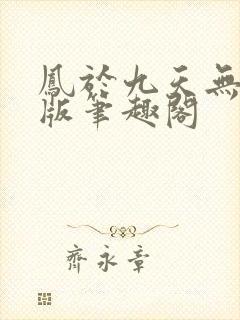 鳳於九天無
版筆趣閣
齊永章